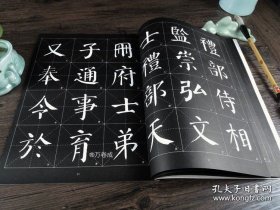 禮部侍相
監崇弘文
士禮部天
冊府士弟
子通事育
又奉令於
孔夫子旧书网